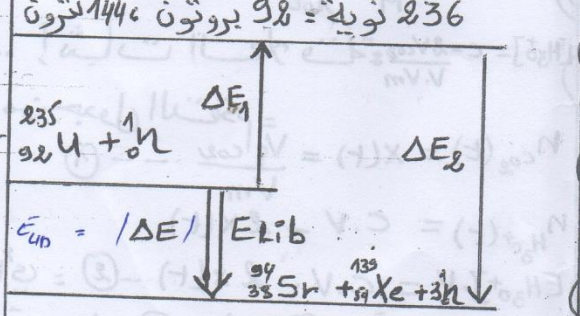 236 نوية = 92 بروتون 144 نترون
ΔE₁
²³⁵₉₂U + ¹₀n
ΔE₂
= |ΔE| Elib
⁹⁴₃₈Sr + ¹³⁹₅₄Xe + 3¹₀n